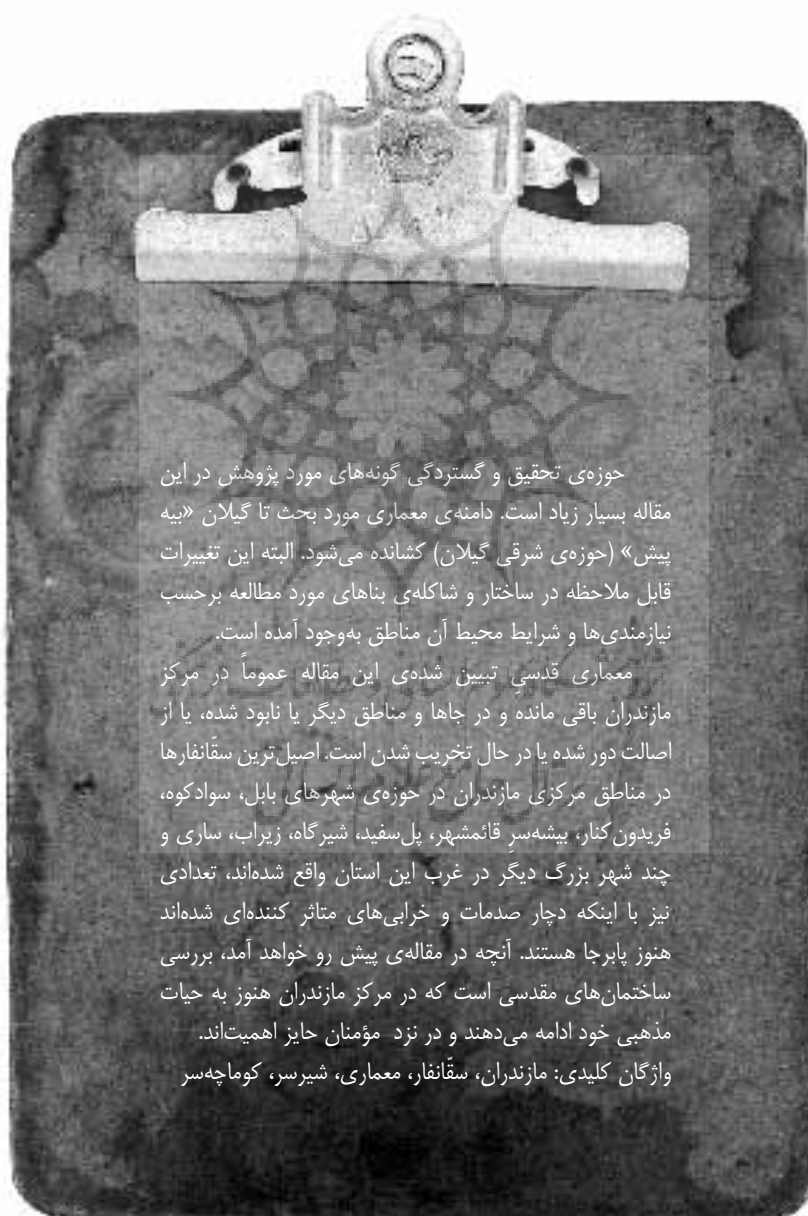 حوزه‌ی تحقیق و گستردگی گونه‌های مورد پژوهش در این
مقاله بسیار زیاد است. دامنه‌ی معماری مورد بحث تا گیلان «بیه
پیش» (حوزه‌ی شرقی گیلان) کشانده می‌شود. البته این تغییرات
قابل ملاحظه در ساختار و شاکله‌ی بناهای مورد مطالعه برحسب
نیازمندی‌ها و شرایط محیط آن مناطق به‌وجود آمده است.
معماری قدسیِ تبیین شده‌ی این مقاله عموماً در مرکز
مازندران باقی مانده و در جاها و مناطق دیگر یا نابود شده، یا از
اصالت دور شده یا در حال تخریب شدن است. اصیل‌ترین سقّانفارها
در مناطق مرکزی مازندران در حوزه‌ی شهرهای بابل، سوادکوه،
فریدون‌کنار، بیشه‌سرِ قائمشهر، پل‌سفید، شیرگاه، زیراب، ساری و
چند شهر بزرگ دیگر در غرب این استان واقع شده‌اند، تعدادی
نیز با اینکه دچار صدمات و خرابی‌های متاثر کننده‌ای شده‌اند
هنوز پابرجا هستند. آنچه در مقاله‌ی پیش رو خواهد آمد، بررسی
ساختمان‌های مقدسی است که در مرکز مازندران هنوز به حیات
مذهبی خود ادامه می‌دهند و در نزد مؤمنان حایز اهمیت‌اند.
واژگان کلیدی: مازندران، سقّانفار، معماری، شیرسر، کوماچه‌سر